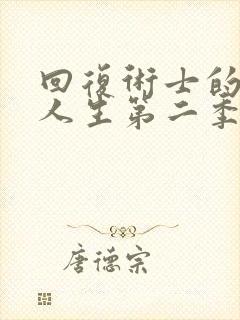 回復術士的
人生第二季
唐德宗